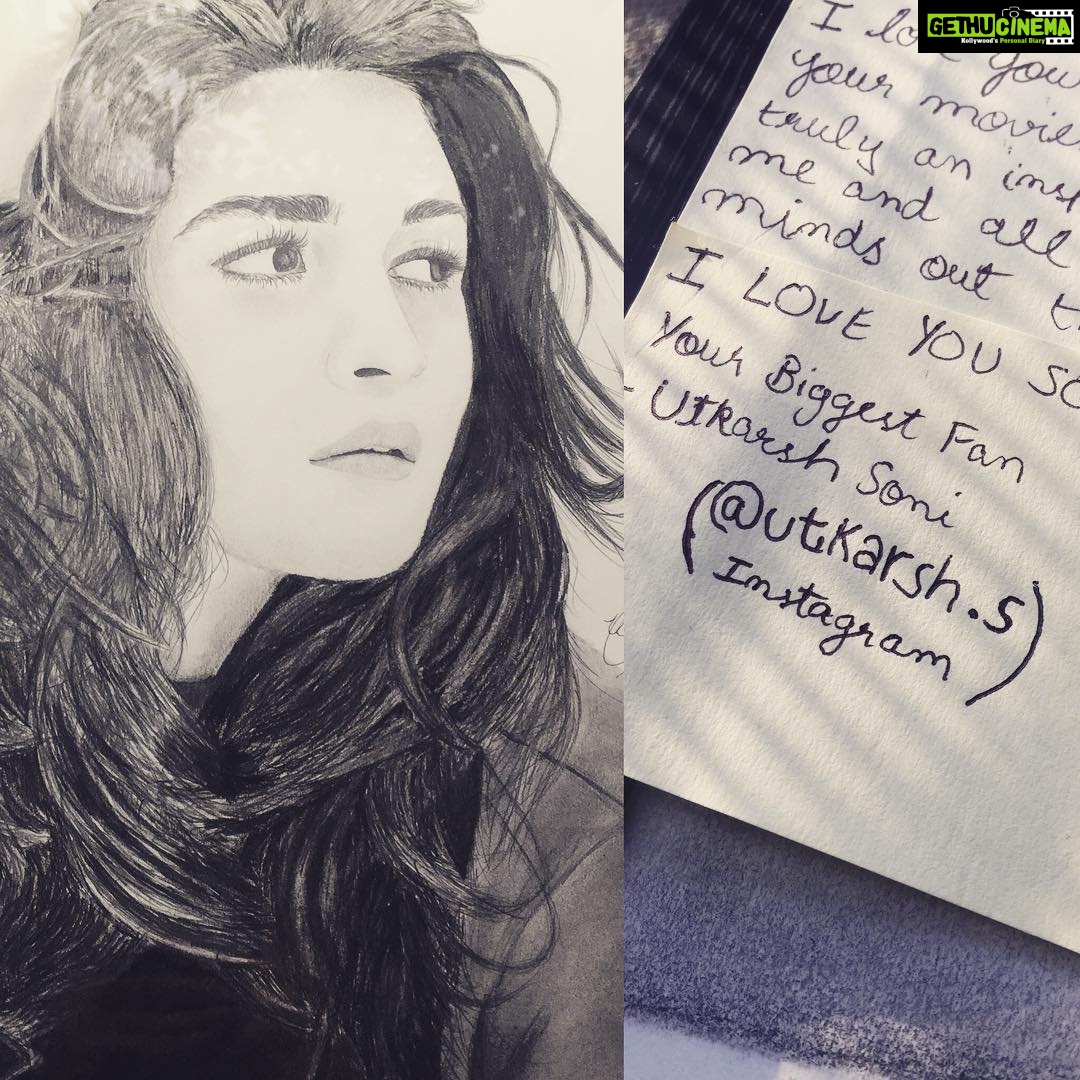 GETHUCINEMA
Kollywood's Personal Diary
I you
your movie
truly an
me and all
minds out
I LOVE YOU SO
Your Biggest Fan
- Utkarsh Soni
(@utkarsh.s)
Instagram